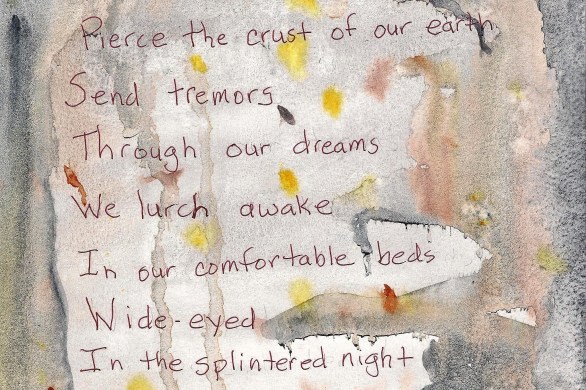 Pierce the crust of our earth
Send tremors
Through our dreams
We lurch awake
In our comfortable beds
Wide-eyed
In the splintered night